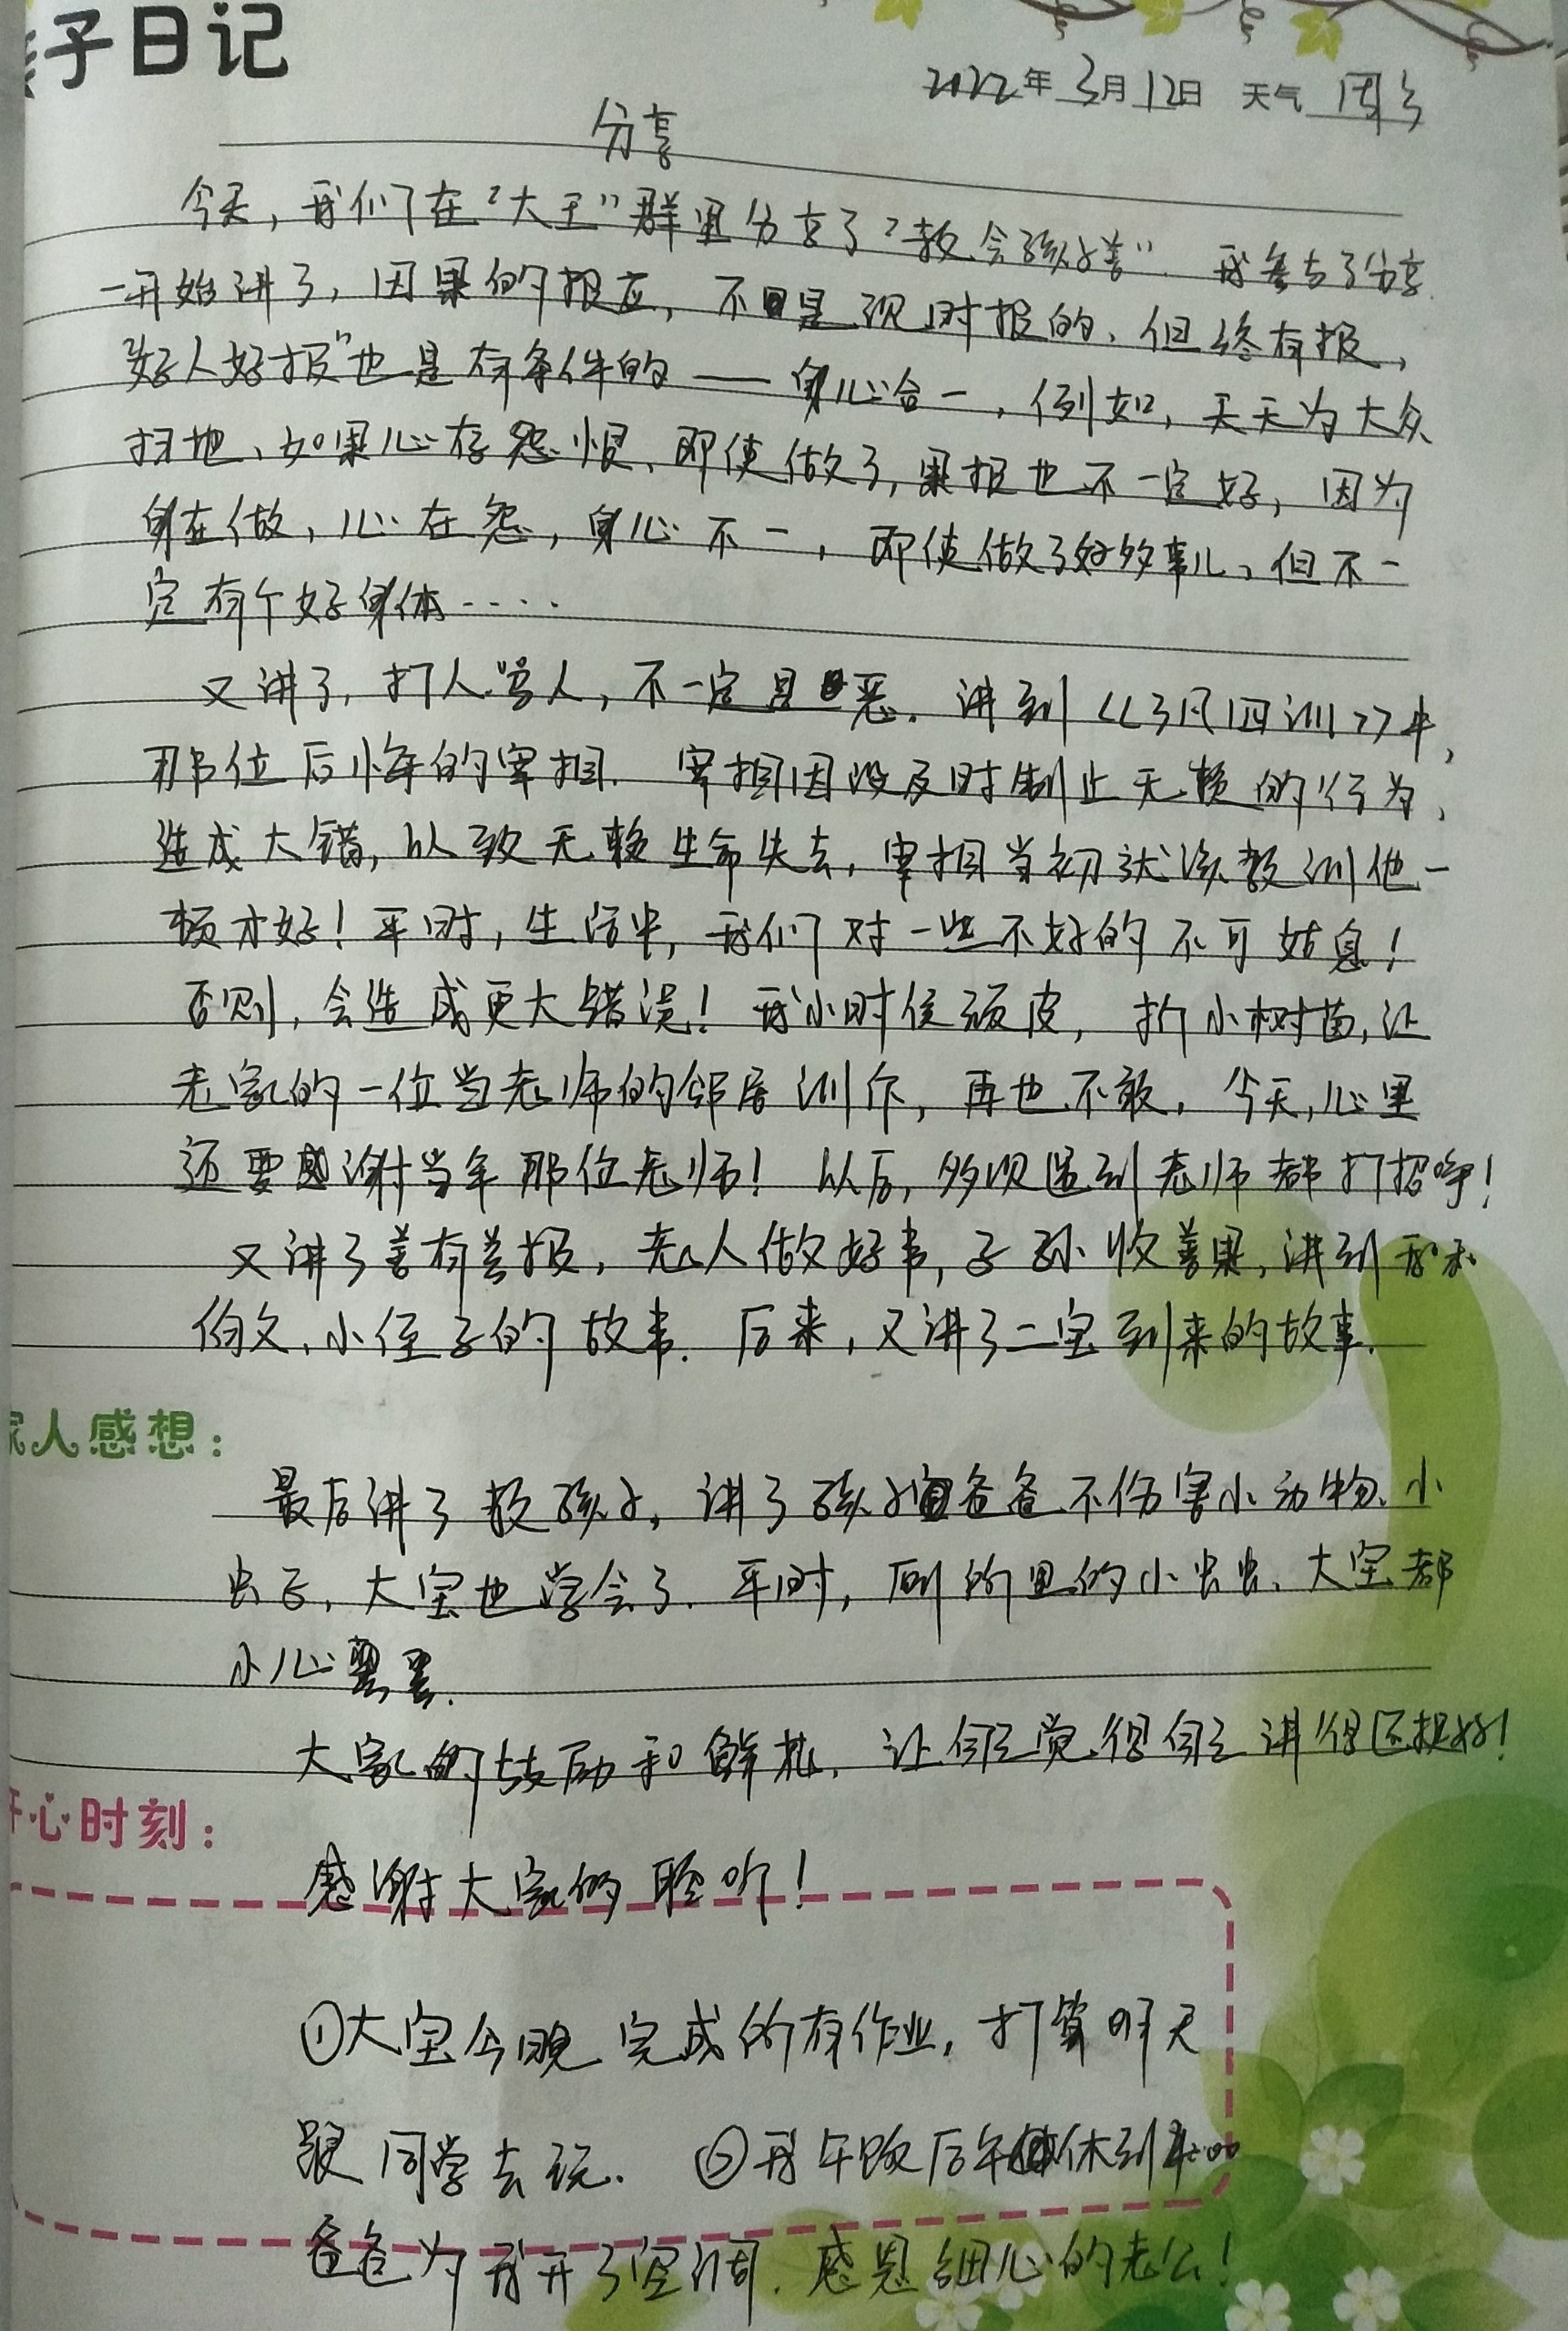 子日记
2022年3月12日 天气
分享
今天,我们在“大王”群里分享了“教会孩子善”.我参与了分享.
一开始讲了,因果的报应,不是现时报的、但终有报,
“好人好报”也是有条件的——身心合一,例如,天天为大众
扫地、如果心存怨恨、即使做了,果报也不一定好,因为
身在做,心在怨,身心不一,即使做了好多事儿、但不一
定有个好身体·····
又讲了,打人骂人,不一定是恶.讲到《了凡四训》中,
那位后悔的宰相.宰相因没及时制止无赖的行为,
造成大错,以致无赖生命失去,宰相当初就该教训他一
顿才好!平时,生活中,我们对一些不好的不可姑息!
否则,会造成更大错误!我小时侯顽皮,折小树苗,让
老家的一位当老师的邻居训斥,再也不敢,今天,心里
还要感谢当年那位老师!以后,多次遇到老师都打招呼!
又讲了善有善报,老人做好事,子孙收善果,讲到我和
伯父、小侄子的故事.后来,又讲了二宝到来的故事.
家人感想:
最后讲了教孩子,讲了孩子爸爸不伤害小动物、小
虫子,大宝也学会了.平时,厕所里的小虫虫、大宝都
小心翼翼.
大家的鼓励和鲜花,让自己觉得自己讲得还挺好!
开心时刻:
感谢大家的聆听!
①大宝今晚完成所有作业,打算明天
跟同学去玩. ②我午饭后午休到4:00
爸爸为我开了空调.感恩细心的老公!